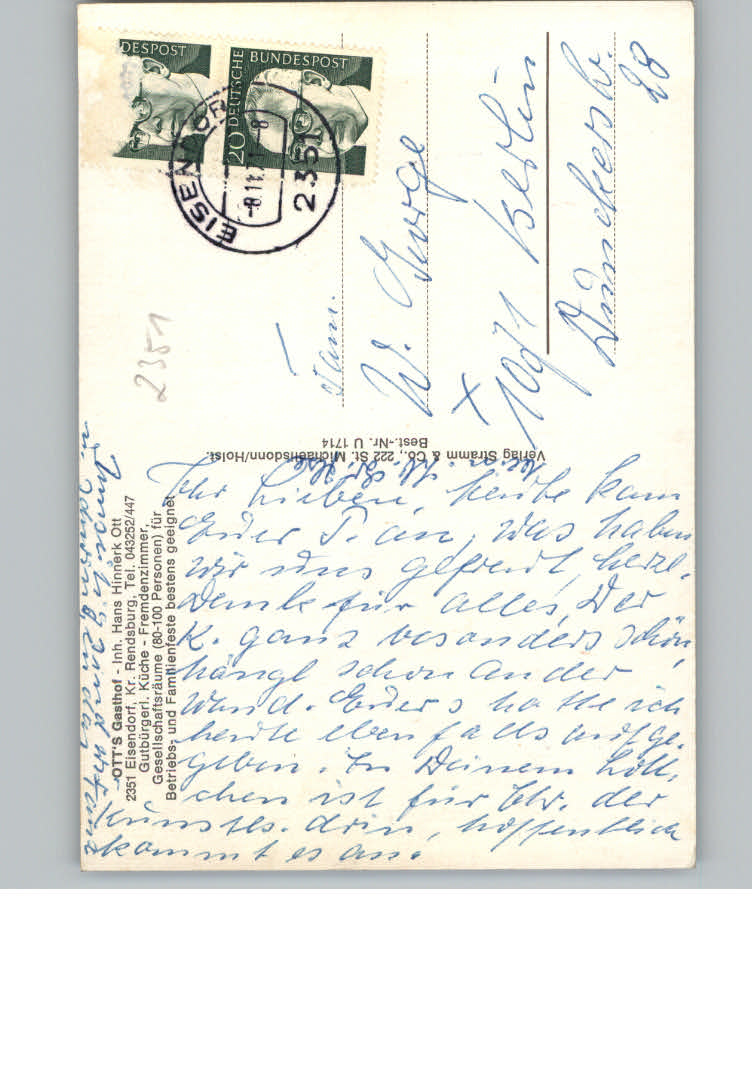 DESPOST
DEUTSCHE BUNDESPOST
20
EISENDORF
-8.11.71-8
2351
2351
Fam.
W. George
X 1071 Berlin
Dunckerstr.
28
Verlag Stramm & Co., 222 St. Michaelisdonn/Holst.
Best.-Nr. U 1714
OTT'S Gasthof - Inh. Hans Hinnerk Ott
2351 Eisendorf, Kr. Rendsburg, Tel. 043252/447
Gutbürgerl. Küche - Fremdenzimmer,
Gesellschaftsräume (80-100 Personen) für
Betriebs- und Familienfeste bestens geeignet
Ihr Lieben, heute kam
Euer an, was haben
wir uns gefreut, herzl.
Dank für alles, Der
K. ganz besonders schön,
hängt schon an der
Wand. Euer s hatte ich
heute ebenfalls aufge-
geben. In Deinem
chen ist für der
drin, hoffentlich
kommt es an.